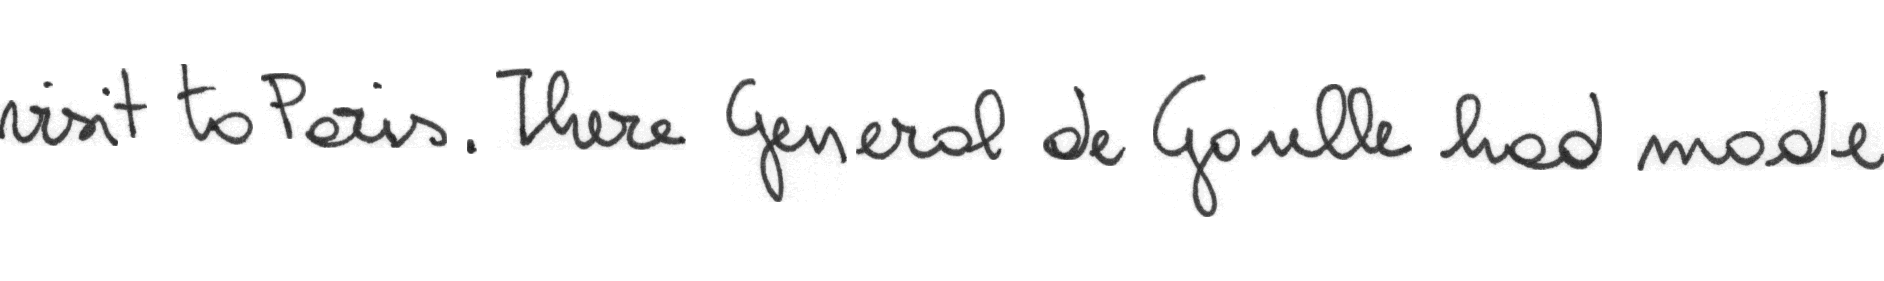 visit to Paris. There General de Gaulle had made